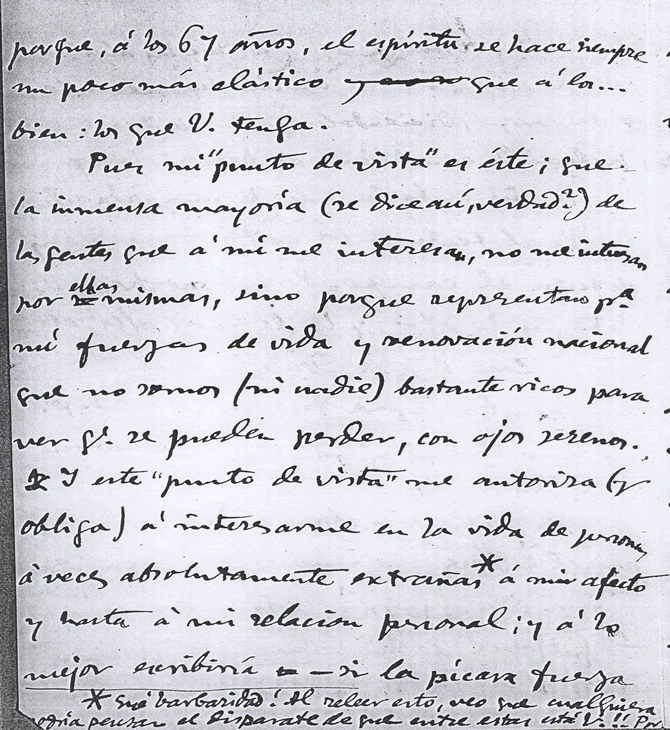 porque, á los 67 años, el espíritu se hace siempre
un poco más elástico y que á los...
bien: los que V. tenga.
Pues mi "punto de vista" es éste; que
la inmensa mayoría (se dice así, verdad?) de
las gentes que á mí me interesan, no me interesan
por ellas mismas, sino porque representan pª
mí fuerzas de vida y renovación nacional
que no somos (ni nadie) bastante ricos para
ver q.e se pueden perder, con ojos serenos.
Y este "punto de vista" me autoriza (y
obliga) á interesarme en la vida de personas
á veces absolutamente extrañas* á mi afecto
y hasta á mi relacion personal; y á lo
mejor escribiría — si la pícara fuerza
* Qué barbaridad! Al releer esto, veo que cualquiera
podría pensar el disparate de que entre estas está V.!! Por